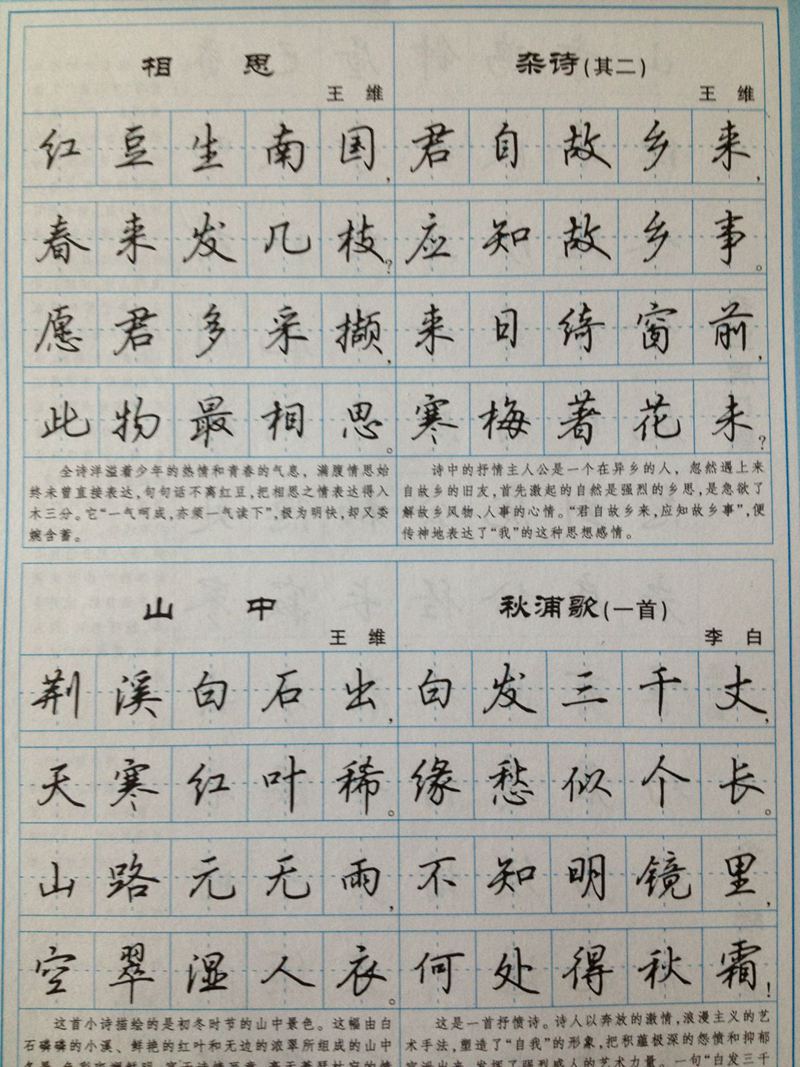 相思
王维
红豆生南国,
春来发几枝?
愿君多采撷,
此物最相思。
全诗洋溢着少年的热情和青春的气息,满腹情思始
终未曾直接表达,句句话不离红豆,把相思之情表达得入
木三分。它“一气呵成,亦须一气读下”,极为明快,却又委
婉含蓄。
杂诗(其二)
王维
君自故乡来,
应知故乡事。
来日绮窗前,
寒梅著花未?
诗中的抒情主人公是一个在异乡的人,忽然遇上来
自故乡的旧友,首先激起的自然是强烈的乡思,是急欲了
解故乡风物、人事的心情。“君自故乡来,应知故乡事”,便
传神地表达了“我”的这种思想感情。
山中
王维
荆溪白石出,
天寒红叶稀。
山路元无雨,
空翠湿人衣。
这首小诗描绘的是初冬时节的山中景色。这幅由白
石磷磷的小溪、鲜艳的红叶和无边的浓翠所组成的山中
秋浦歌(一首)
李白
白发三千丈,
缘愁似个长。
不知明镜里,
何处得秋霜!
这是一首抒情诗。诗人以奔放的激情,浪漫主义的艺
术手法,塑造了“自我”的形象,把积蕴极深的怨愤和抑郁